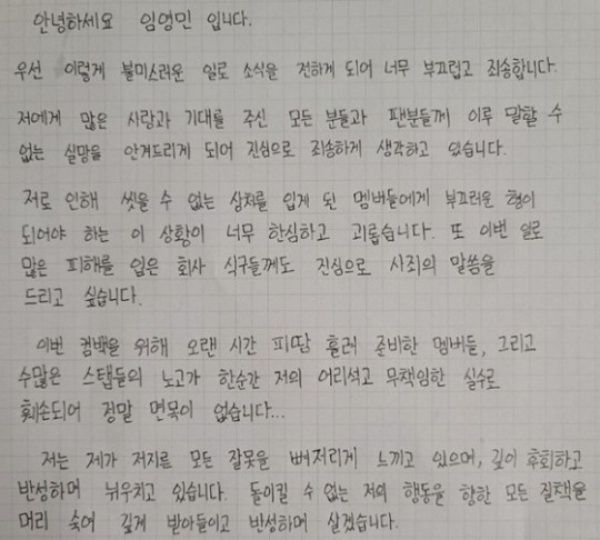 안녕하세요 임영민 입니다.
우선 이렇게 불미스러운 일로 소식을 전하게 되어 너무 부끄럽고 죄송합니다.
저에게 많은 사랑과 기대를 주신 모든 분들과 팬분들께 이루 말할 수
없는 실망을 안겨드리게 되어 진심으로 죄송하게 생각하고 있습니다.
저로 인해 씻을 수 없는 상처를 입게 된 멤버들에게 부끄러운 형이
되어야 하는 이 상황이 너무 한심하고 괴롭습니다. 또 이번 일로
많은 피해를 입은 회사 식구들께도 진심으로 사죄의 말씀을
드리고 싶습니다.
이번 컴백을 위해 오랜 시간 피땀 흘려 준비한 멤버들, 그리고
수많은 스탭들의 노고가 한순간 저의 어리석고 무책임한 실수로
훼손되어 정말 면목이 없습니다...
저는 제가 저지른 모든 잘못을 뼈저리게 느끼고 있으며, 깊이 후회하고
반성하며 뉘우치고 있습니다. 돌이킬 수 없는 저의 행동을 향한 모든 질책을
머리 숙여 깊게 받아들이고 반성하며 살겠습니다.